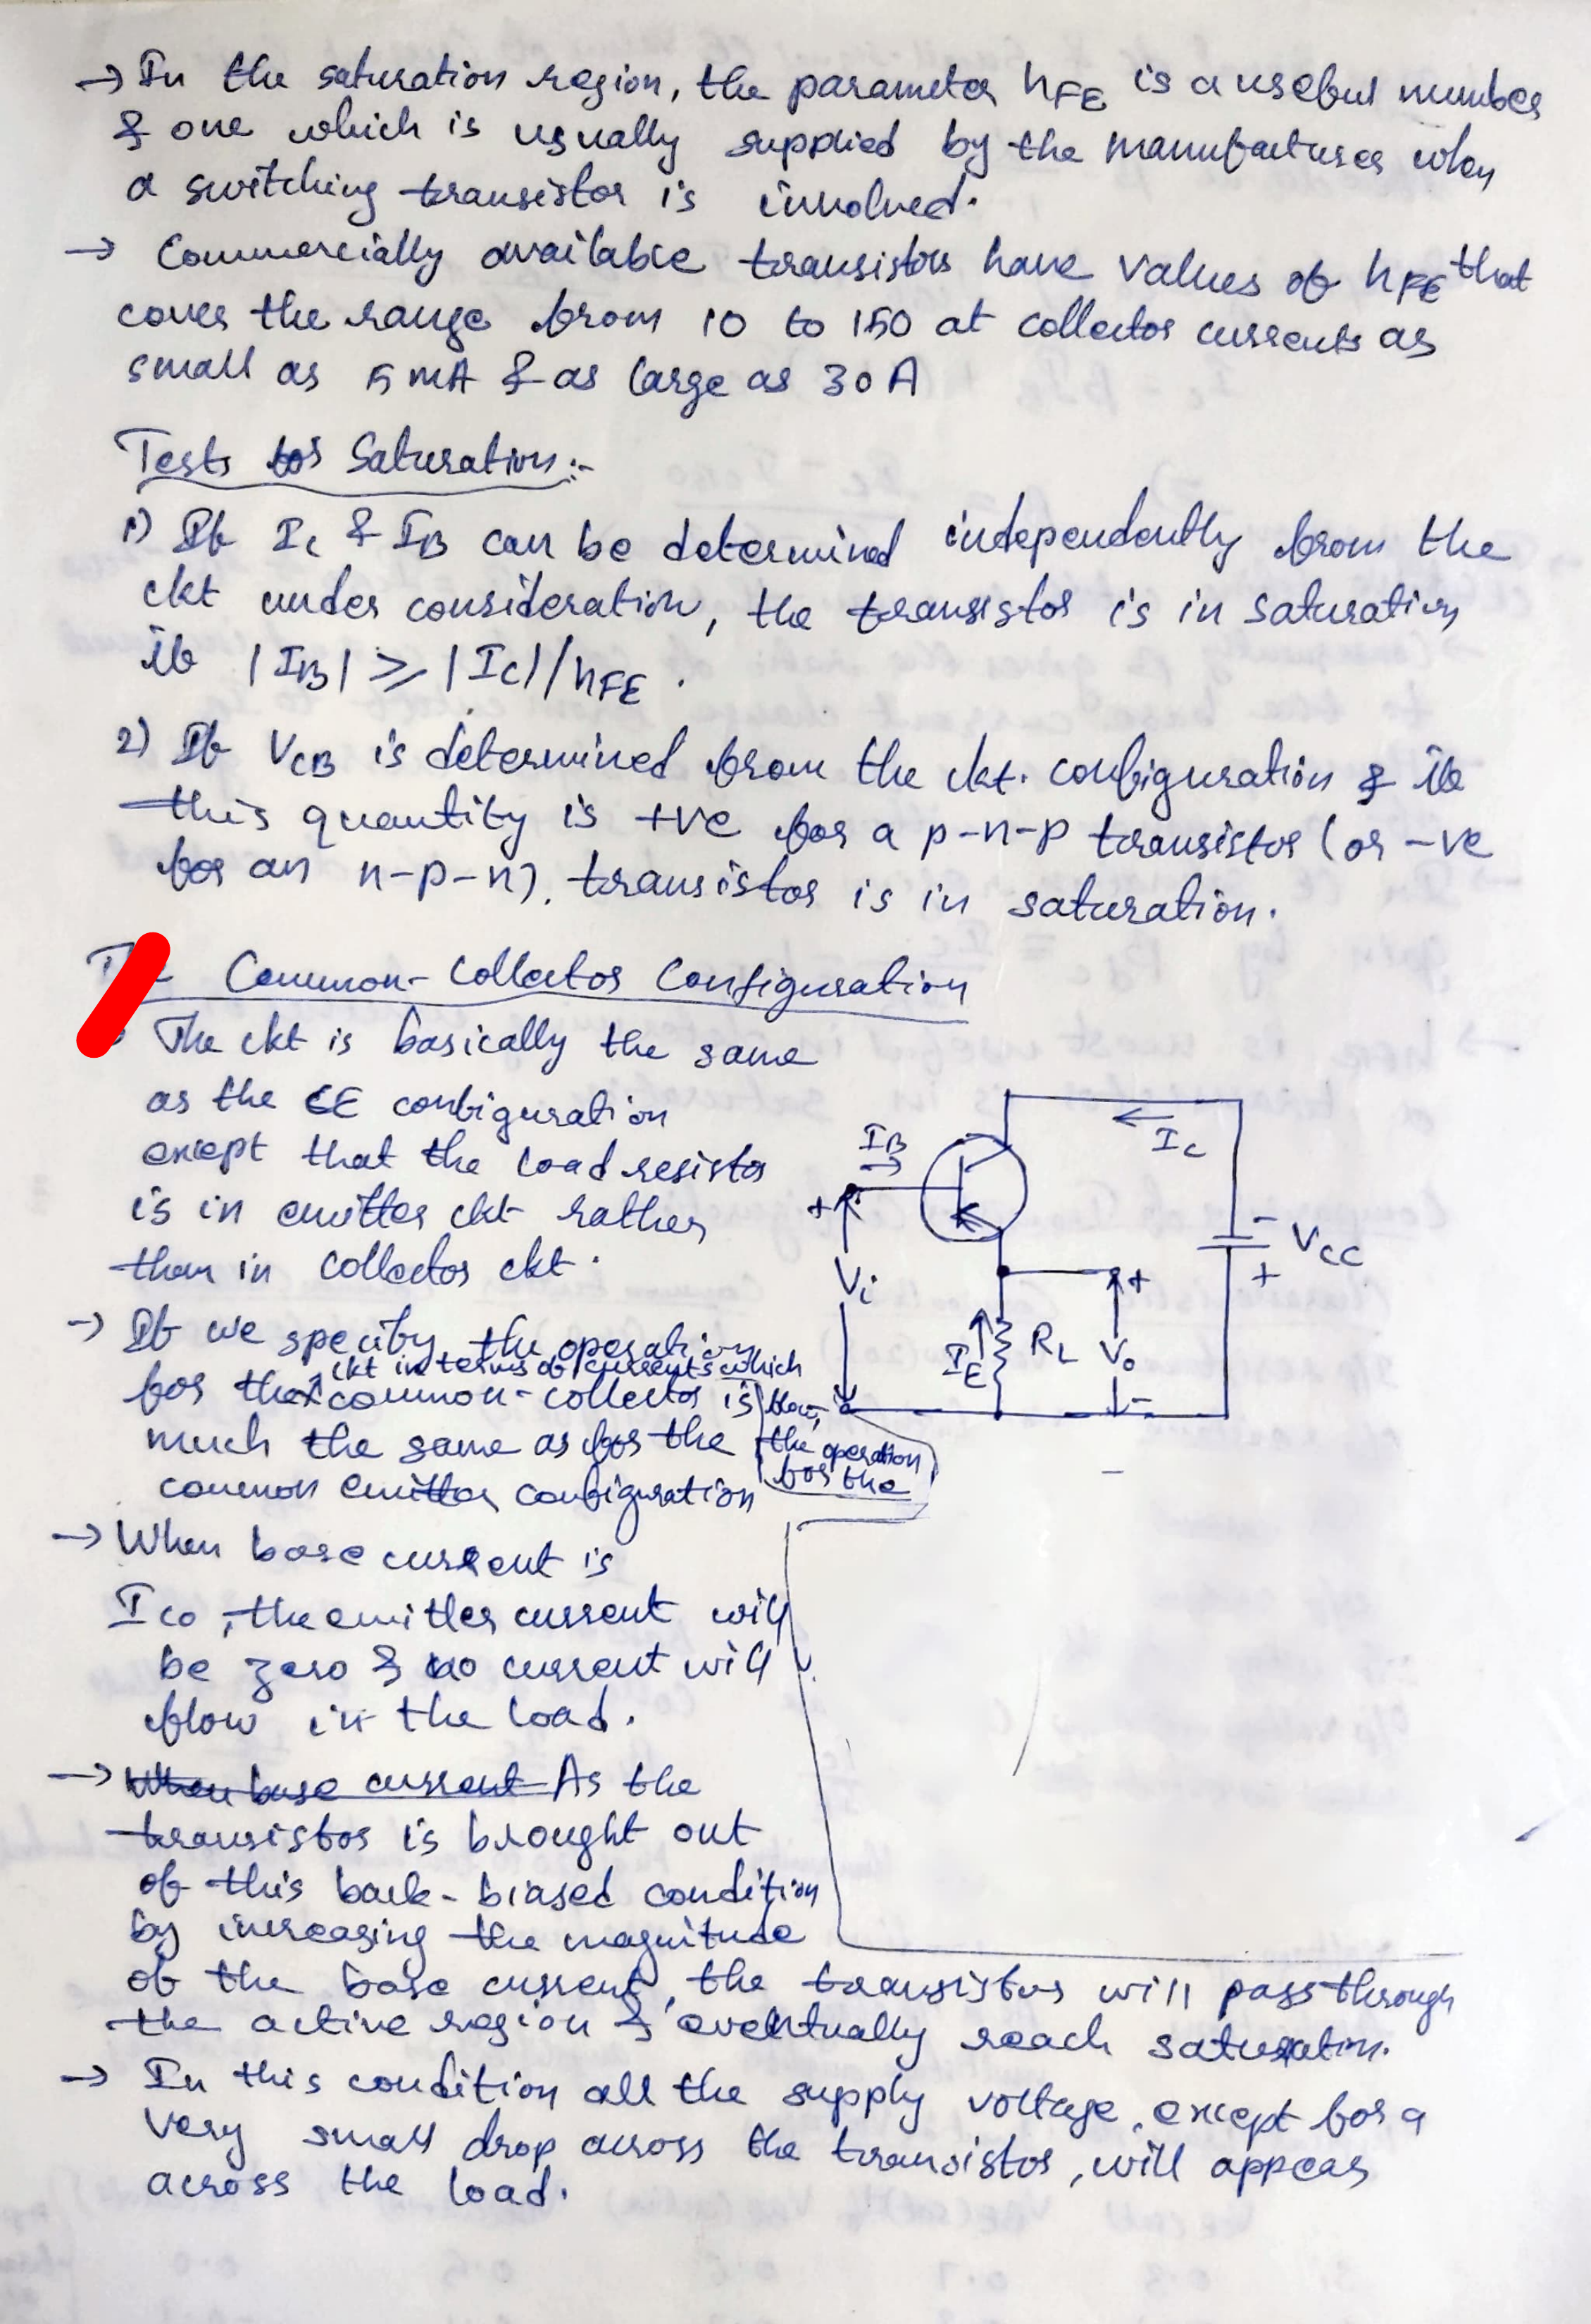 → In the saturation region, the parameter hFE is a useful number
& one which is usually supplied by the manufacturer when
a switching transistor is involved.
→ Commercially available transistors have values of hFE that
cover the range from 10 to 150 at collector currents as
small as 5 mA & as large as 30 A
Tests for Saturation:-
1) If IC & IB can be determined independently from the
ckt under consideration, the transistor is in saturation
if |IB| ≥ |IC|/hFE .
2) If VCB is determined from the ckt. configuration & if
this quantity is +ve for a p-n-p transistor (or -ve
for an n-p-n), transistor is in saturation.
Common-Collector Configuration
The ckt is basically the same
as the CE configuration
except that the load resistor
is in emitter ckt rather
than in collector ckt.
→ If we specify the operation
ckt in terms of currents which
for the common-collector is
flow,
much the same as for the
the operation
for the
common emitter configuration
→ When base current is
ICO, the emitter current will
be zero & no current will
flow in the load.
→ When base current As the
transistor is brought out
of this back-biased condition
by increasing the magnitude
of the base current, the transistor will pass through
the active region & eventually reach saturation.
→ In this condition all the supply voltage, except for a
very small drop across the transistor, will appear
across the load.
IB
IC
+
Vi
-
VCC
+
+
IE
RL
Vo
-